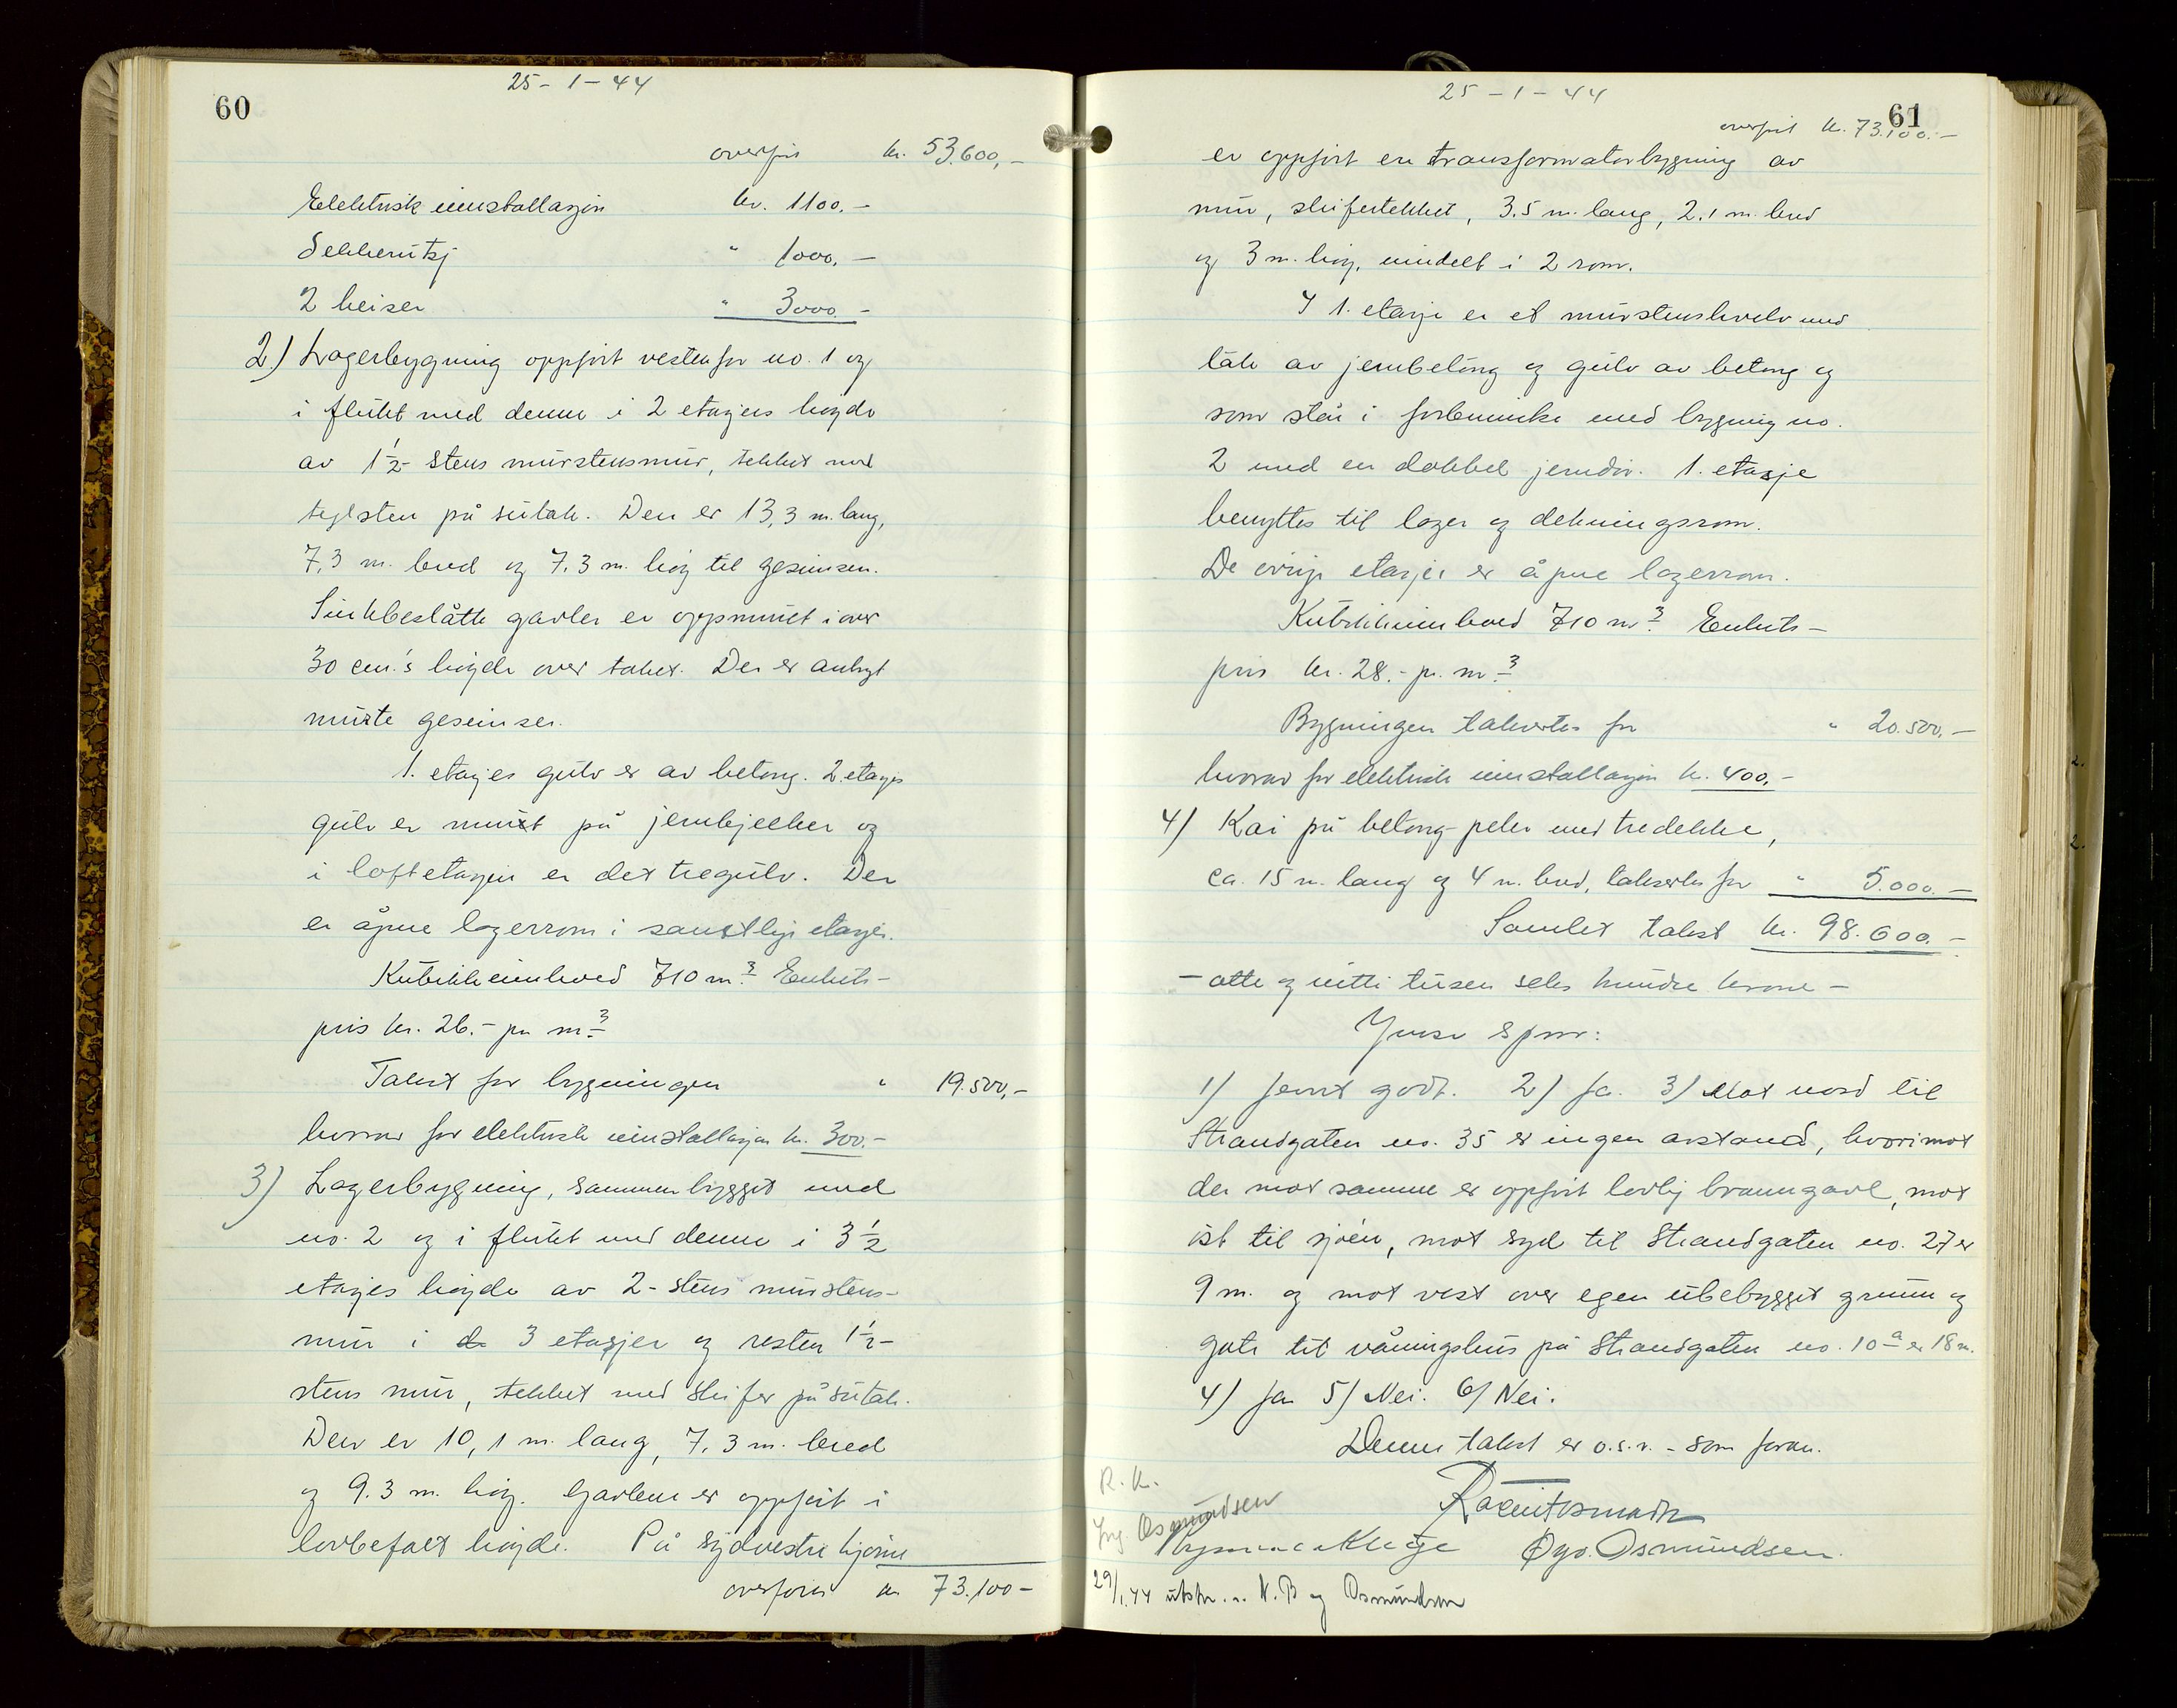 60
25-1-44
overført kr. 53.600,-
Elektrisk innstallasjon kr. 1100.-
Sekkerutsj " 1000.-
2 heiser " 3000.-
2) Lagerbygning oppført vestenfor no. 1 og
i flukt med denne i 2 etasjers høyde
av 1½ stens murstensmur, tekket med
teglsten på sutak. Den er 13,3 m. lang,
7,3 m. bred og 7.3 m. høy til gesimsen.
Sinkbeslåtte gavler er oppmuret i over
30 cm.'s høyde over taket. Der er anlagt
murte gesimser.
1. etasjes gulv er av betong. 2. etasjes
gulv er murt på jernbjelker og
i loftetasjen er det tregulv. Der
er åpne lagerrom i samtlige etasjer.
Kubikkinnhold 710 m³. Enhets-
pris kr. 26.- pr. m³
Takst for bygningen " 19.500,-
hvorav for elektrisk innstallasjon kr. 300.-
3) Lagerbygning, sammenbygget med
no. 2 og i flukt med denne i 3½
etasjes høyde av 2-stens murstens-
mur i de 3 etasjer og resten 1½-
stens mur, tekket med skifer på sutak.
Den er 10,1 m. lang, 7.3 m. bred
og 9.3 m. høy. Gavlene er oppført i
lovbefalt høyde. På sydvestre hjørne
overføres kr 73.100-
61
25-1-44
overført kr. 73.100.-
er oppført en transformatorbygning av
mur, skifertekket, 3.5 m. lang, 2.1 m. bred
og 3 m. høy, inndelt i 2 rom.
I 1. etasje er et murstenshvelv med
tak av jernbetong og gulv av betong og
som står i forbindelse med bygning no.
2 med en dobbel jerndør. 1. etasje
benyttes til lager og dekningsrom.
De øvrige etasjer er åpne lagerrom.
Kubikkinnhold 710 m³. Enhets-
pris kr. 28.- pr. m³
Bygningen takseres for " 20.500.-
hvorav for elektrisk innstallasjon kr. 400.-
4) Kai på betong-peler med tredekke,
ca. 15 m. lang og 4 m. bred, takseres for " 5.000.-
Samlet takst kr. 98.600.-
- otte og nitti tusen seks hundre krone -
Spm:
1) Jevnt godt. 2) Ja. 3) Mot nord til
Strandgaten no. 35 er ingen avstand, hvorimot
der mot samme er oppført lovlig branngavl, mot
øst til sjøen, mot syd til Strandgaten no. 27 er
9 m. og mot vest over egen ubebygget grunn og
gate til våningshus på Strandgaten no. 10ª er 18 m.
4) Ja 5) Nei. 6) Nei.
Denne takst er o.s.v. - som foran.
R. K.
Osmundsen
Øyv. Osmundsen.
29/1.44 utskr. N.B og Osmundsen